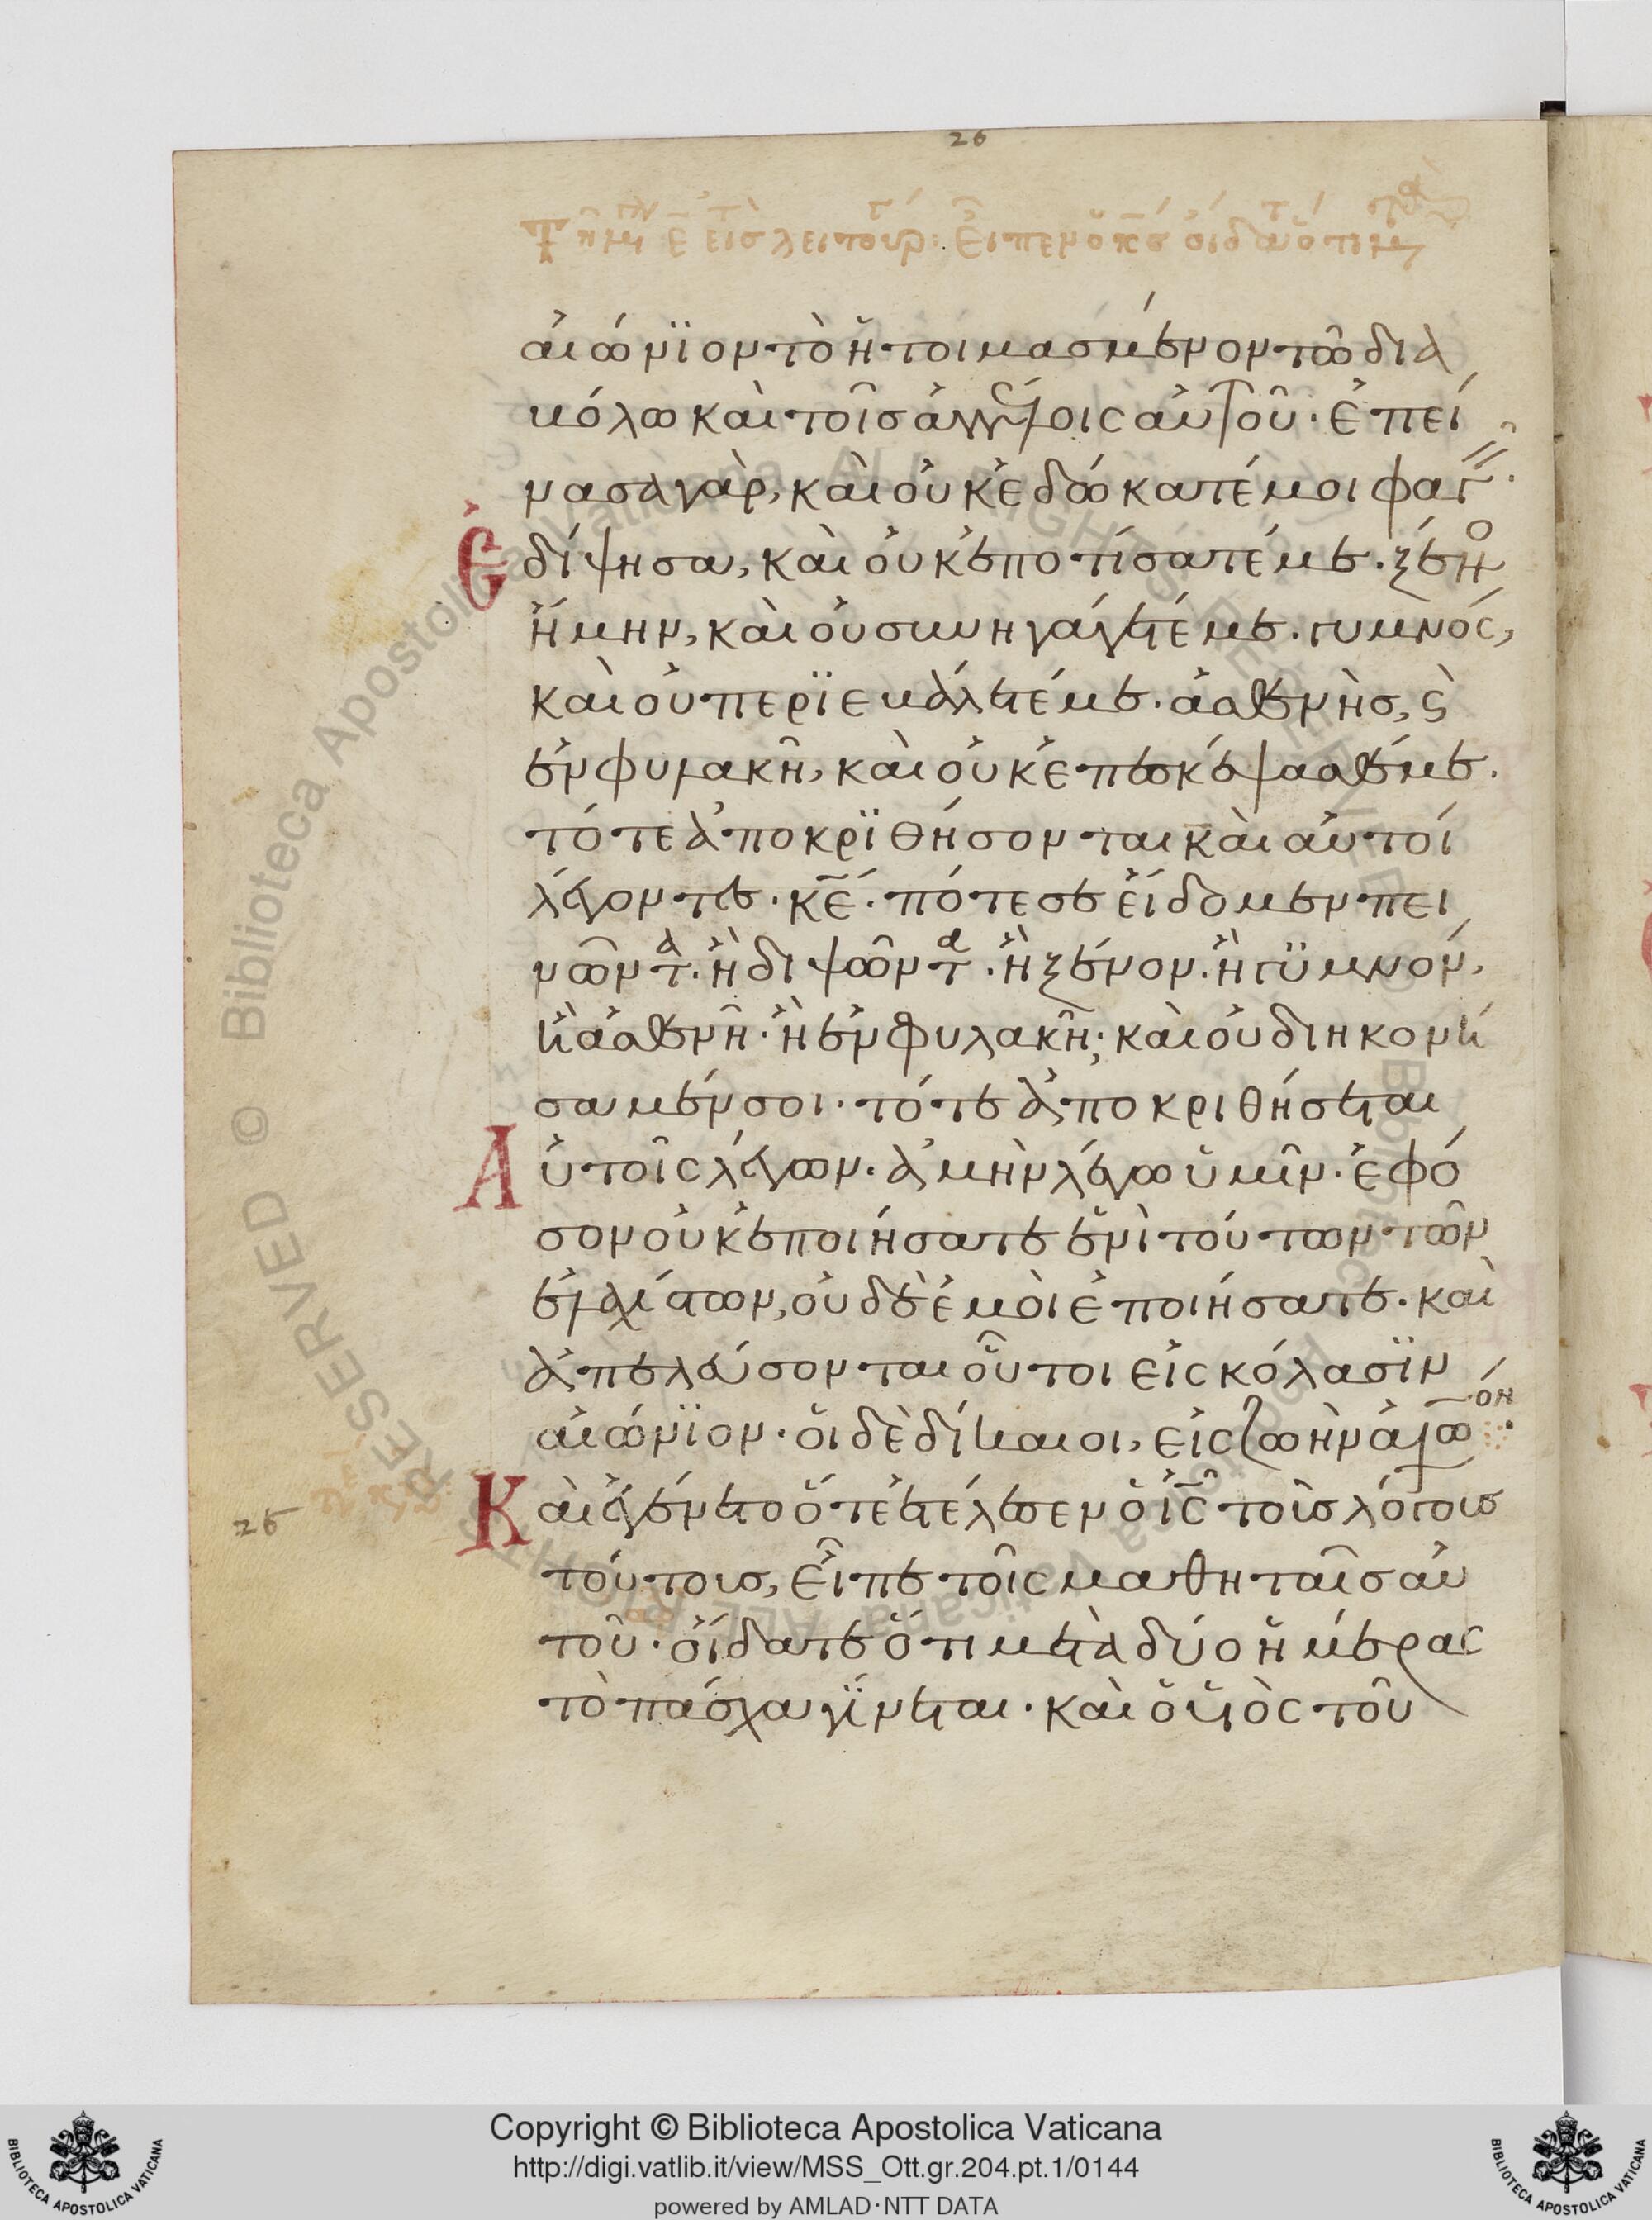 26
αἰώνϊον τὸ ἡτοιμασμένον τῶ δια
βόλω καὶ τοῖσ ἀγγέλοις αὐτοῦ· ἐπεί
νασα γὰρ, καὶ οὐκ ἐδώκατέ μοι φαγ
ἐδίψησα, καὶ οὐκ ἐποτίσατέ με. ξέν
ἤμην, καὶ οὐ συνηγάγετέ με. γυμνός,
καὶ οὐ περϊεβάλετέ με. ἀσθενὴσ, ϛ
ἐν φυλακῆ, καὶ οὐκ ἐπεσκέψασθέ με.
τότε ἀποκρϊθήσονται καὶ αὐτοί
λέγοντες. κε. πότε σε εἴδομεν πει
νῶντα. ἢ διψῶντα. ἢ ξένον. ἢ γϋμνόν,
ἢ ἀσθενῆ. ἢ ἐν φυλακῆ; καὶ οὐ διηκονή
σαμέν σοι. τότε ἀποκριθήσεται
Αὐτοῖς λέγων. ἀμὴν λέγω ὑμῖν. ἐφό
σον οὐκ ἐποιήσατε ἑνὶ τούτων τῶν
ἐλαχίστων, οὐδὲ ἐμοὶ ἐποιήσατε. καὶ
ἀπελεύσονται οὗτοι εἰς κόλασϊν
αἰώνϊον. οἱ δὲ δίκαιοι, εἰς ζωὴν αἰώνιον
Καὶ ἐγένετο ὅτε ἐτέλεσεν ὁ ις τοὺσ λόγουσ
26
τούτουσ, εἶπε τοῖς μαθηταῖσ αὐ
τοῦ. οἴδατε ὅτι μετὰ δύο ἡμέρας
τὸ πάσχα γίνεται. καὶ ὁ υἱὸς τοῦ
RESERVED © Biblioteca Apostolica Vaticana ALL RIGHTS RESERVED © Biblioteca Apostolica Vaticana ALL RIGHTS
Copyright © Biblioteca Apostolica Vaticana
http://digi.vatlib.it/view/MSS_Ott.gr.204.pt.1/0144
powered by AMLAD·NTT DATA
BIBLIOTECA APOSTOLICA VATICANA
BIBLIOTECA APOSTOLICA VATICANA